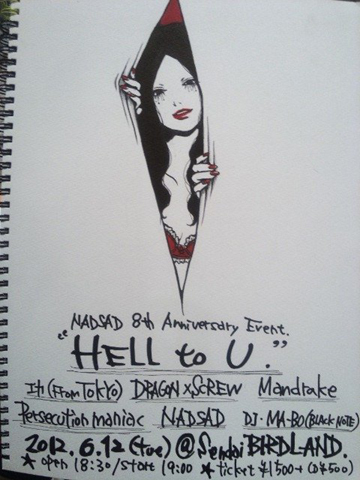 NADSAD 8th Anniversary Event.
"HELL to U."
(From TOKYO) DRAGON×SCREW Mandrake
Persecution maniac NADSAD DJ・MA-BO (BLACK NOTE)
2012.6.12 (tue) @ Sendai BIRDLAND.
★ open 18:30/start 19:00 ★ ticket ¥1500+(D¥500)